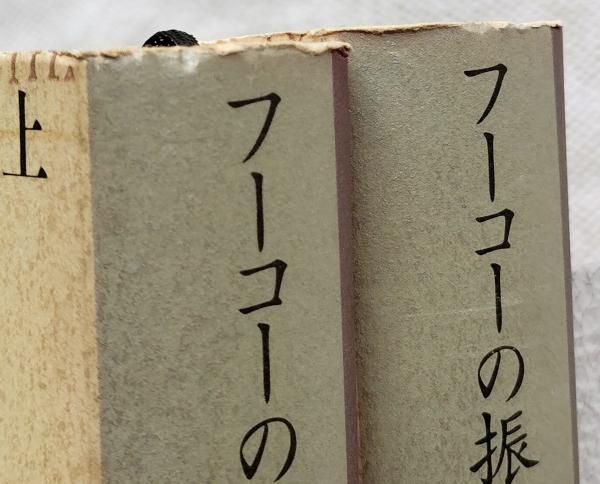 フーコーの振
フーコーの
上